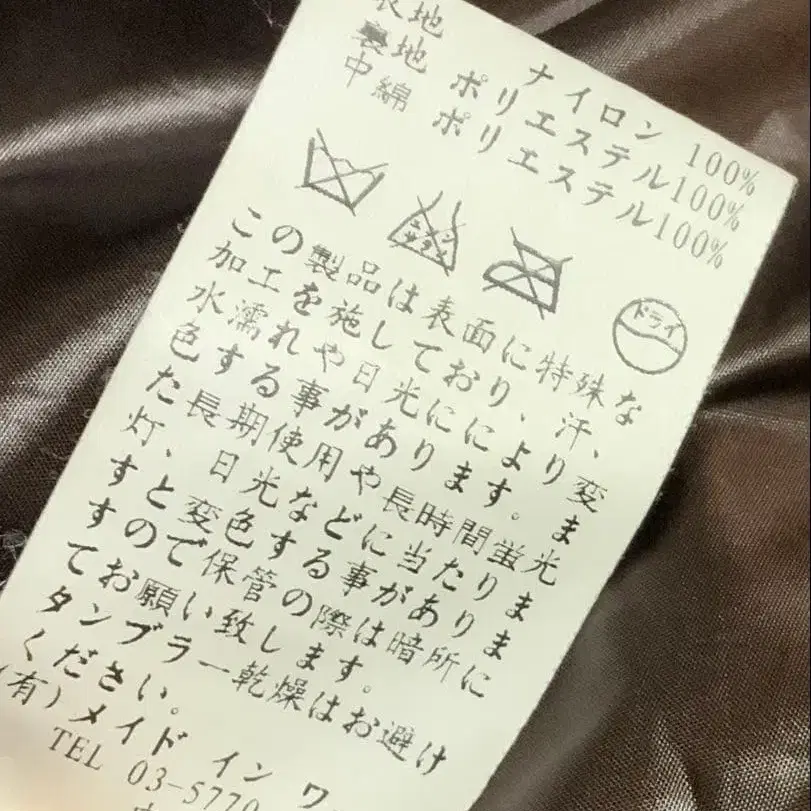 表地 ナイロン 100%
裏地 ポリエステル100%
中綿 ポリエステル100%
エンソ
サラシ
ドライ
この製品は表面に特殊な
加工を施しており、汗、
水濡れや日光ににより変
色する事があります。ま
た長期使用や長時間蛍光
灯、日光などに当たりま
すと変色する事がありま
すので保管の際は暗所に
てお願い致します。
タンブラー乾燥はお避け
ください。
(有)メイド イン ワ
TEL 03-5770